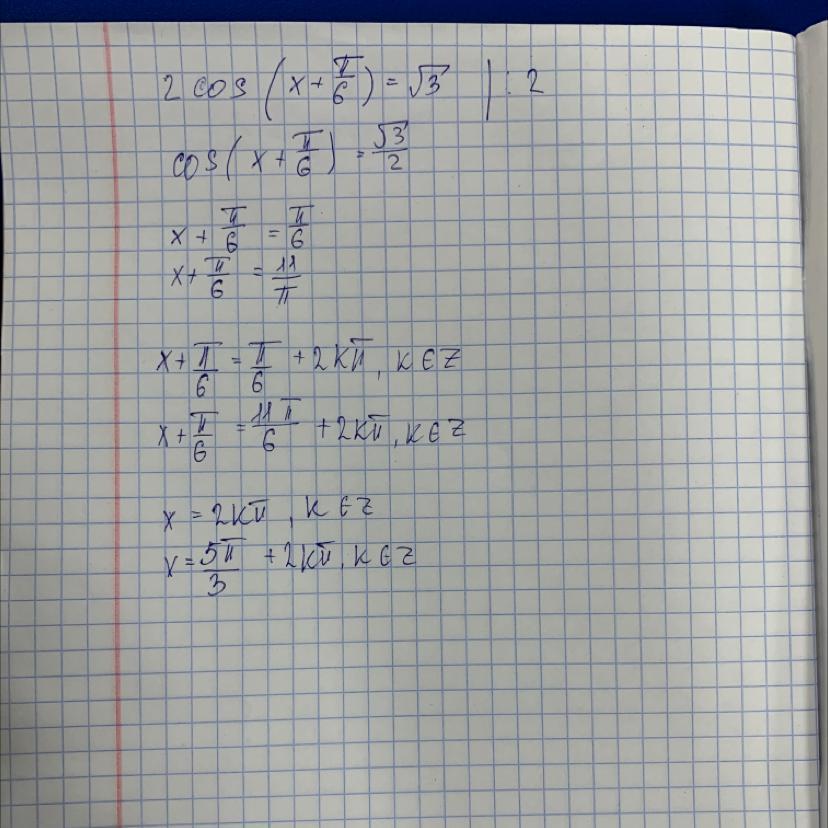 2 cos (x + π/6) = √3 | : 2
cos (x + π/6) = √3/2
x + π/6 = π/6
x + π/6 = 11/π
x + π/6 = π/6 + 2kπ, k ∈ Z
x + π/6 = 11π/6 + 2kπ, k ∈ Z
x = 2kπ, k ∈ Z
x = 5π/3 + 2kπ, k ∈ Z